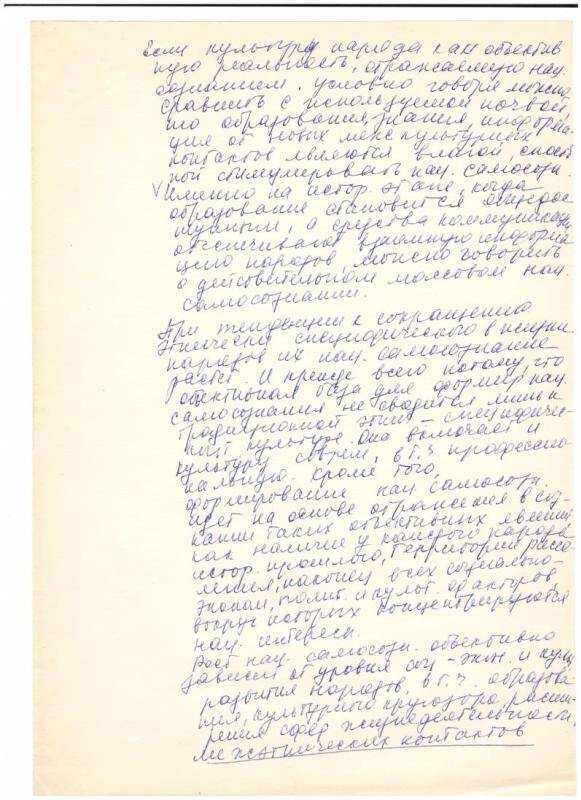 Если культуру народа как объектив
ную реальность, отражаемую нац.
сознанием, условно говоря можно
сравнить с используемой почвой,
то образования, знания, информа
ция об новых меж культурных
контактов являются влагой, способ
ной стимулировать нац. самосозн.
V Именно на истор. этапе, когда
образование становится общедос
тупным, а средства коммуникации
обеспечивают взаимную информа
цию народов, можно говорить
о действительном массовом нац.
самосознании.
При тенденции к сокращению
этнически специфического в жизни
народов их нац. самосознание
растет. И прежде всего потому, что
объективная база для формир нац.
самосознания не сводится лишь к
традиционной этни - специфичес
кой культуре. Она включает и
культуру соврем, в т.ч. професссио
нальную. Кроме того,
формирование нац. самосозн.
идет на основе отражения в соз
нании таких объективных явлений
как наличие у каждого народа
истор. прошлого, территории рассе
ления, наконец всех социально-
эконом, полит. и культ. факторов
вокруг которых концентрируются
нац. интересы.
Рост нац. самосозн. объективно
зависит от уровня соц - экон. и культ
развития народов, в т.ч. образова
ния, культурного кругозора, расши
рения сфер жизнедеятельности,
межэтнических контактов